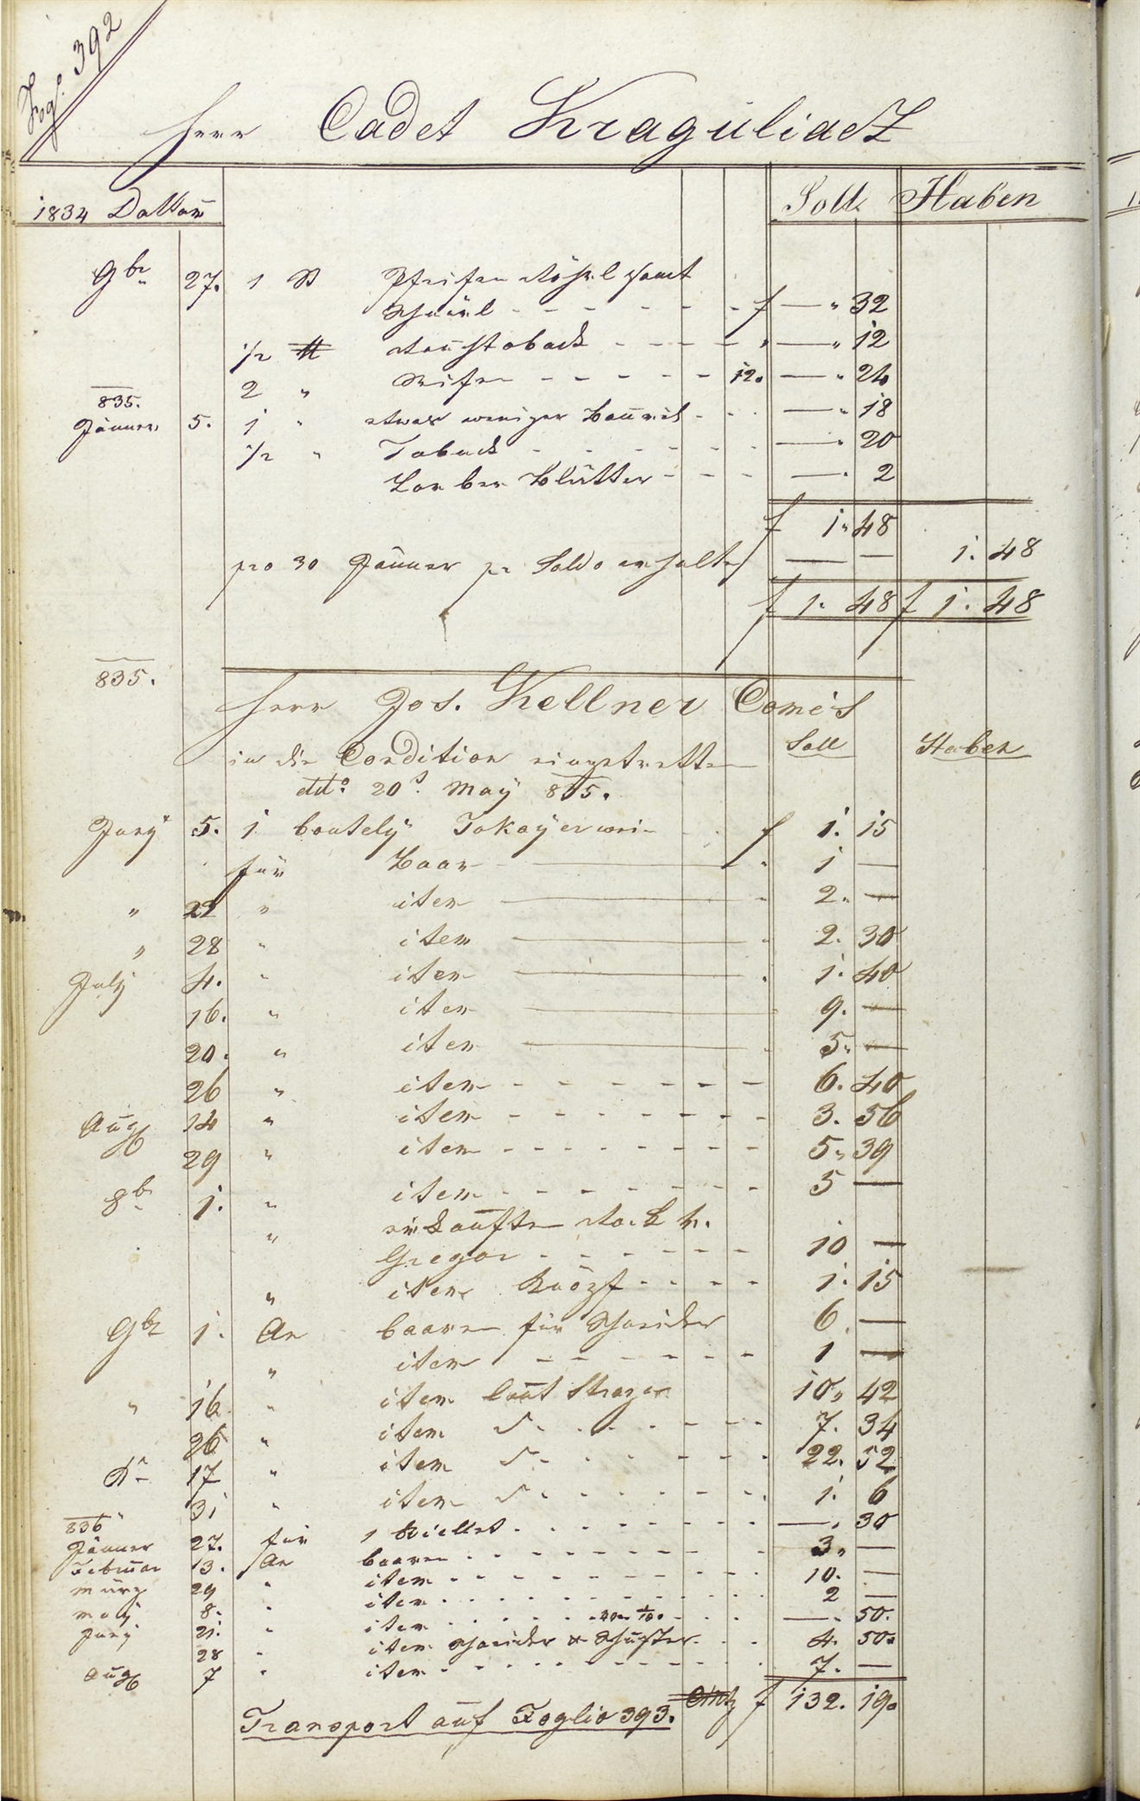 Fog. 392
Herr Cadet Kraguliacz
1834 Dattum Soll Haben
9br 27. 1 St Pfeifen Röhrl samt
Schnürl f — " 32
1/2 ℔ Rauchtoback — " 12
2 " Seifen 12. — " 24
835.
Jänner 5. 1 " etwas weniger Baumöl — " 18
1/2 " Toback — " 20
Lorber Blätter — " 2
f 1. 48
pro 30 Jänner pr Saldo erhalten — — 1. 48
f 1. 48 f 1. 48
835.
Herr Jos. Kellner Comis
in die Condition eingetretten Soll Haben
ddo. 20t. May 835.
Juny 5. 1 boutely Tokayerwein f 1. 15
für Baar 1 —
" 22 " item 2. —
" 28 " item 2. 30
July 4. " item 1. 40
16. " item 9. —
20. " item 5. —
26 " item 6. 40
Aug 14 " item 3. 56
29 " item 5. 39
8br 1. " item 5 —
" erkauften Rock v.
Gregor 10 —
" item Knöpf 1. 15
9br 1. An baaren für Schneider 6 —
" item 1 —
" 16 " item laut Strazze 10. 42
26 " item 7. 34
Xr 17 " item 22. 52
31 " item 1. 6
836
Jänner 27. für 1 Billet —. 30
Februar 13. An baaren 3. —
März 29 " item 10. —
May 8. " item 2 —
Juny 21. " item —. 50.
28 " item Schneider & Schuster 4. 50
Aug 7 " item 7. —
Transport auf Foglio 393. f 132. 19